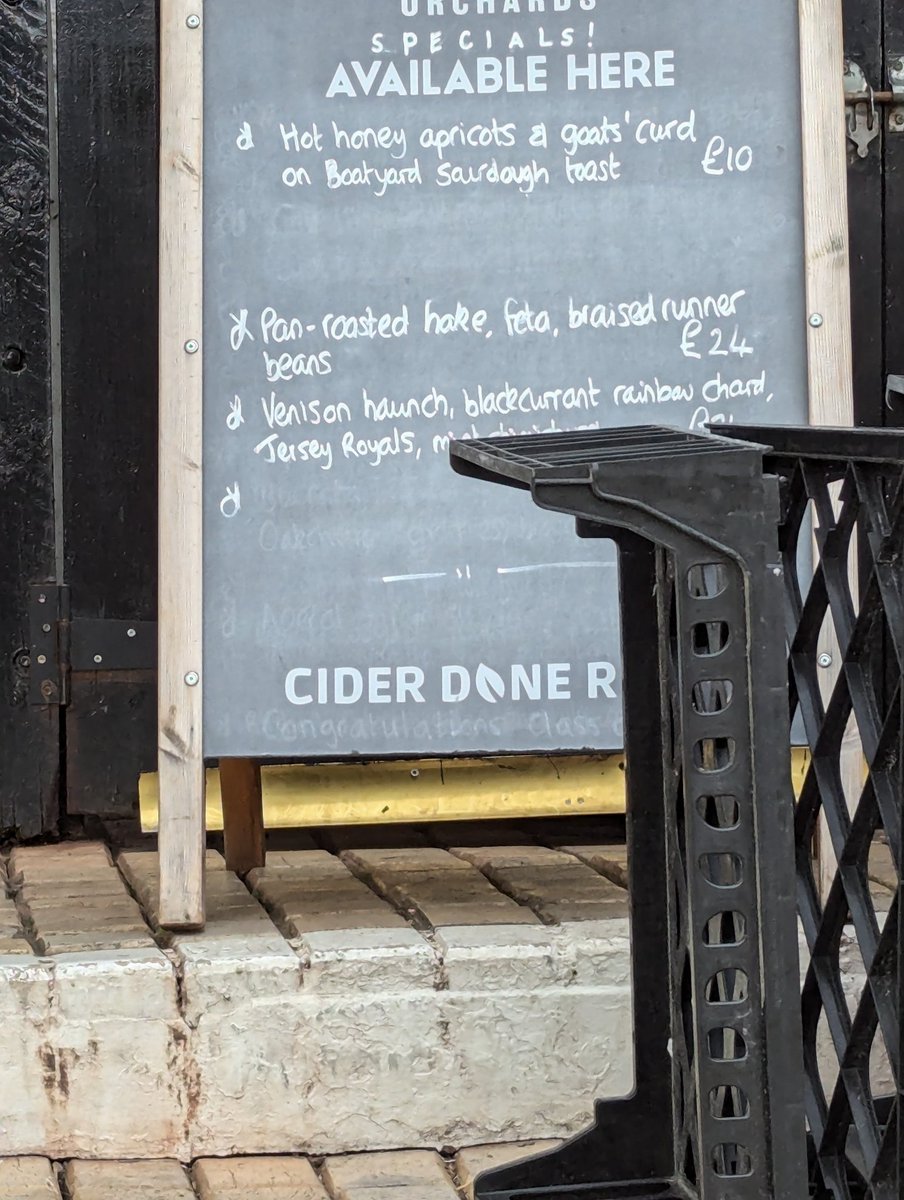 ORCHARDS
SPECIALS!
AVAILABLE HERE
Hot honey apricots & goats' curd
on Boatyard Sourdough toast £10
Pan-roasted hake, feta, braised runner
beans £24
Venison haunch, blackcurrant rainbow chard,
Jersey Royals,
CIDER DONE R
Congratulations Class